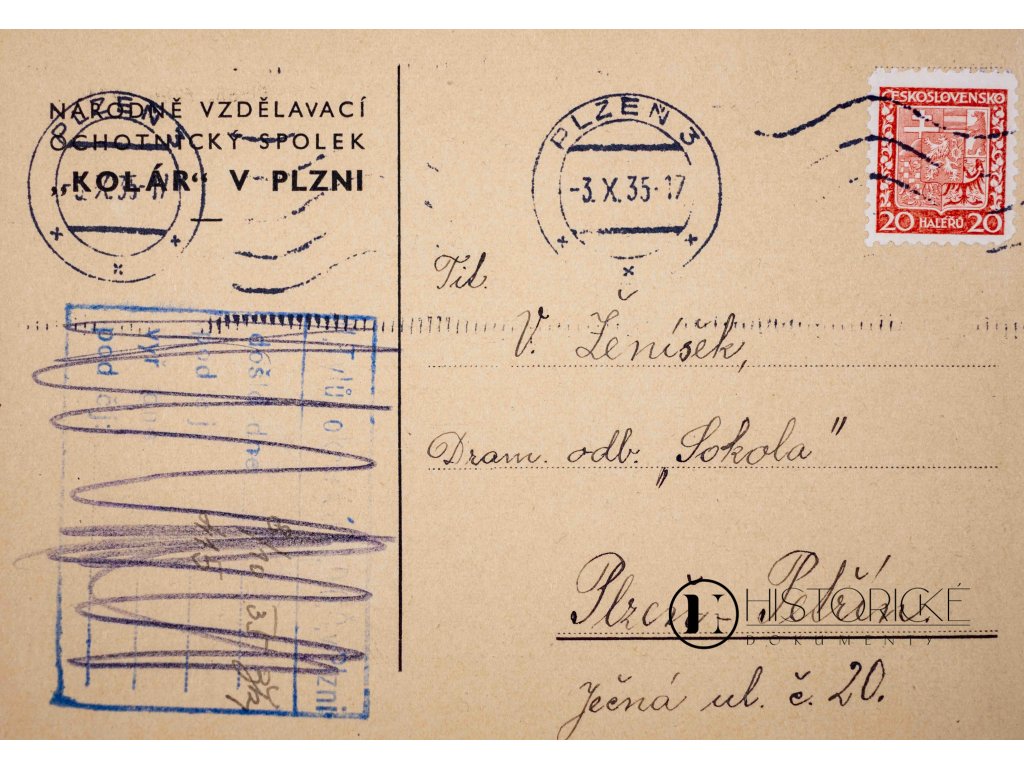 NÁRODNĚ VZDĚLAVACÍ
OCHOTNICKÝ SPOLEK
„KOLÁR" V PLZNI
PLZEŇ 3
-3.X.35-17
PLZEŇ 3
-3.X.35-17
ČESKOSLOVENSKO
20 HALÉŘŮ 20
Tit.
V. Ženíšek,
Dram. odb. „Sokola"
Plzeň
Ječná ul. č. 20.
HISTORICKÉ
DOKUMENTY
došlo dne
pod
pod čj.